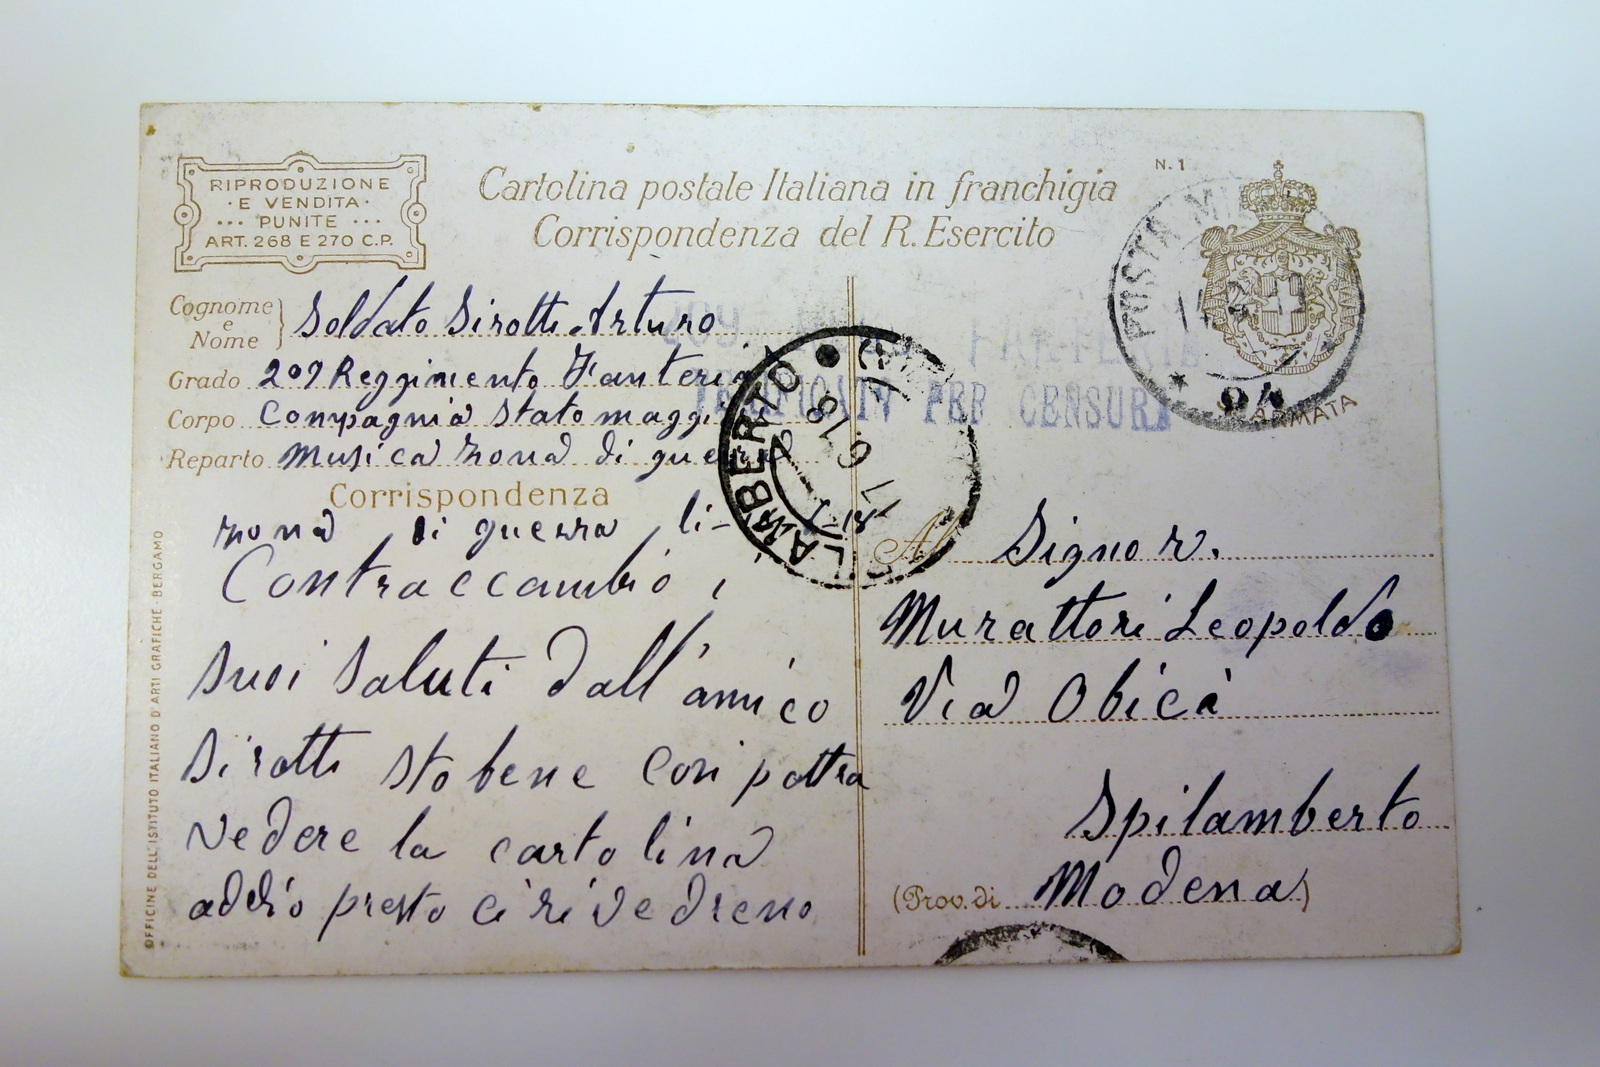 RIPRODUZIONE
E VENDITA
PUNITE
ART. 268 E 270 C.P.
Cartolina postale Italiana in franchigia
Corrispondenza del R. Esercito
N. 1
POSTA MI
94
ARMATA
Cognome e Nome Soldato Sirotti Arturo
Grado 209 Reggimento Fanteria
Corpo Compagnia Stato maggi
Reparto Musica zona di guerra
Corrispondenza
VERIFICATA PER CENSURA
SPILAMBERTO
17 6.18
zona di guerra, li
Contraccambio i
suoi saluti dall'amico
Sirotti sto bene cosi pottra
vedere la cartolina
addio presto ci rivedremo
Al Signor.
Murattori Leopoldo
Via Obici
Spilamberto
(Prov. di Modena)
OFFICINE DELL'ISTITUTO ITALIANO D'ARTI GRAFICHE - BERGAMO